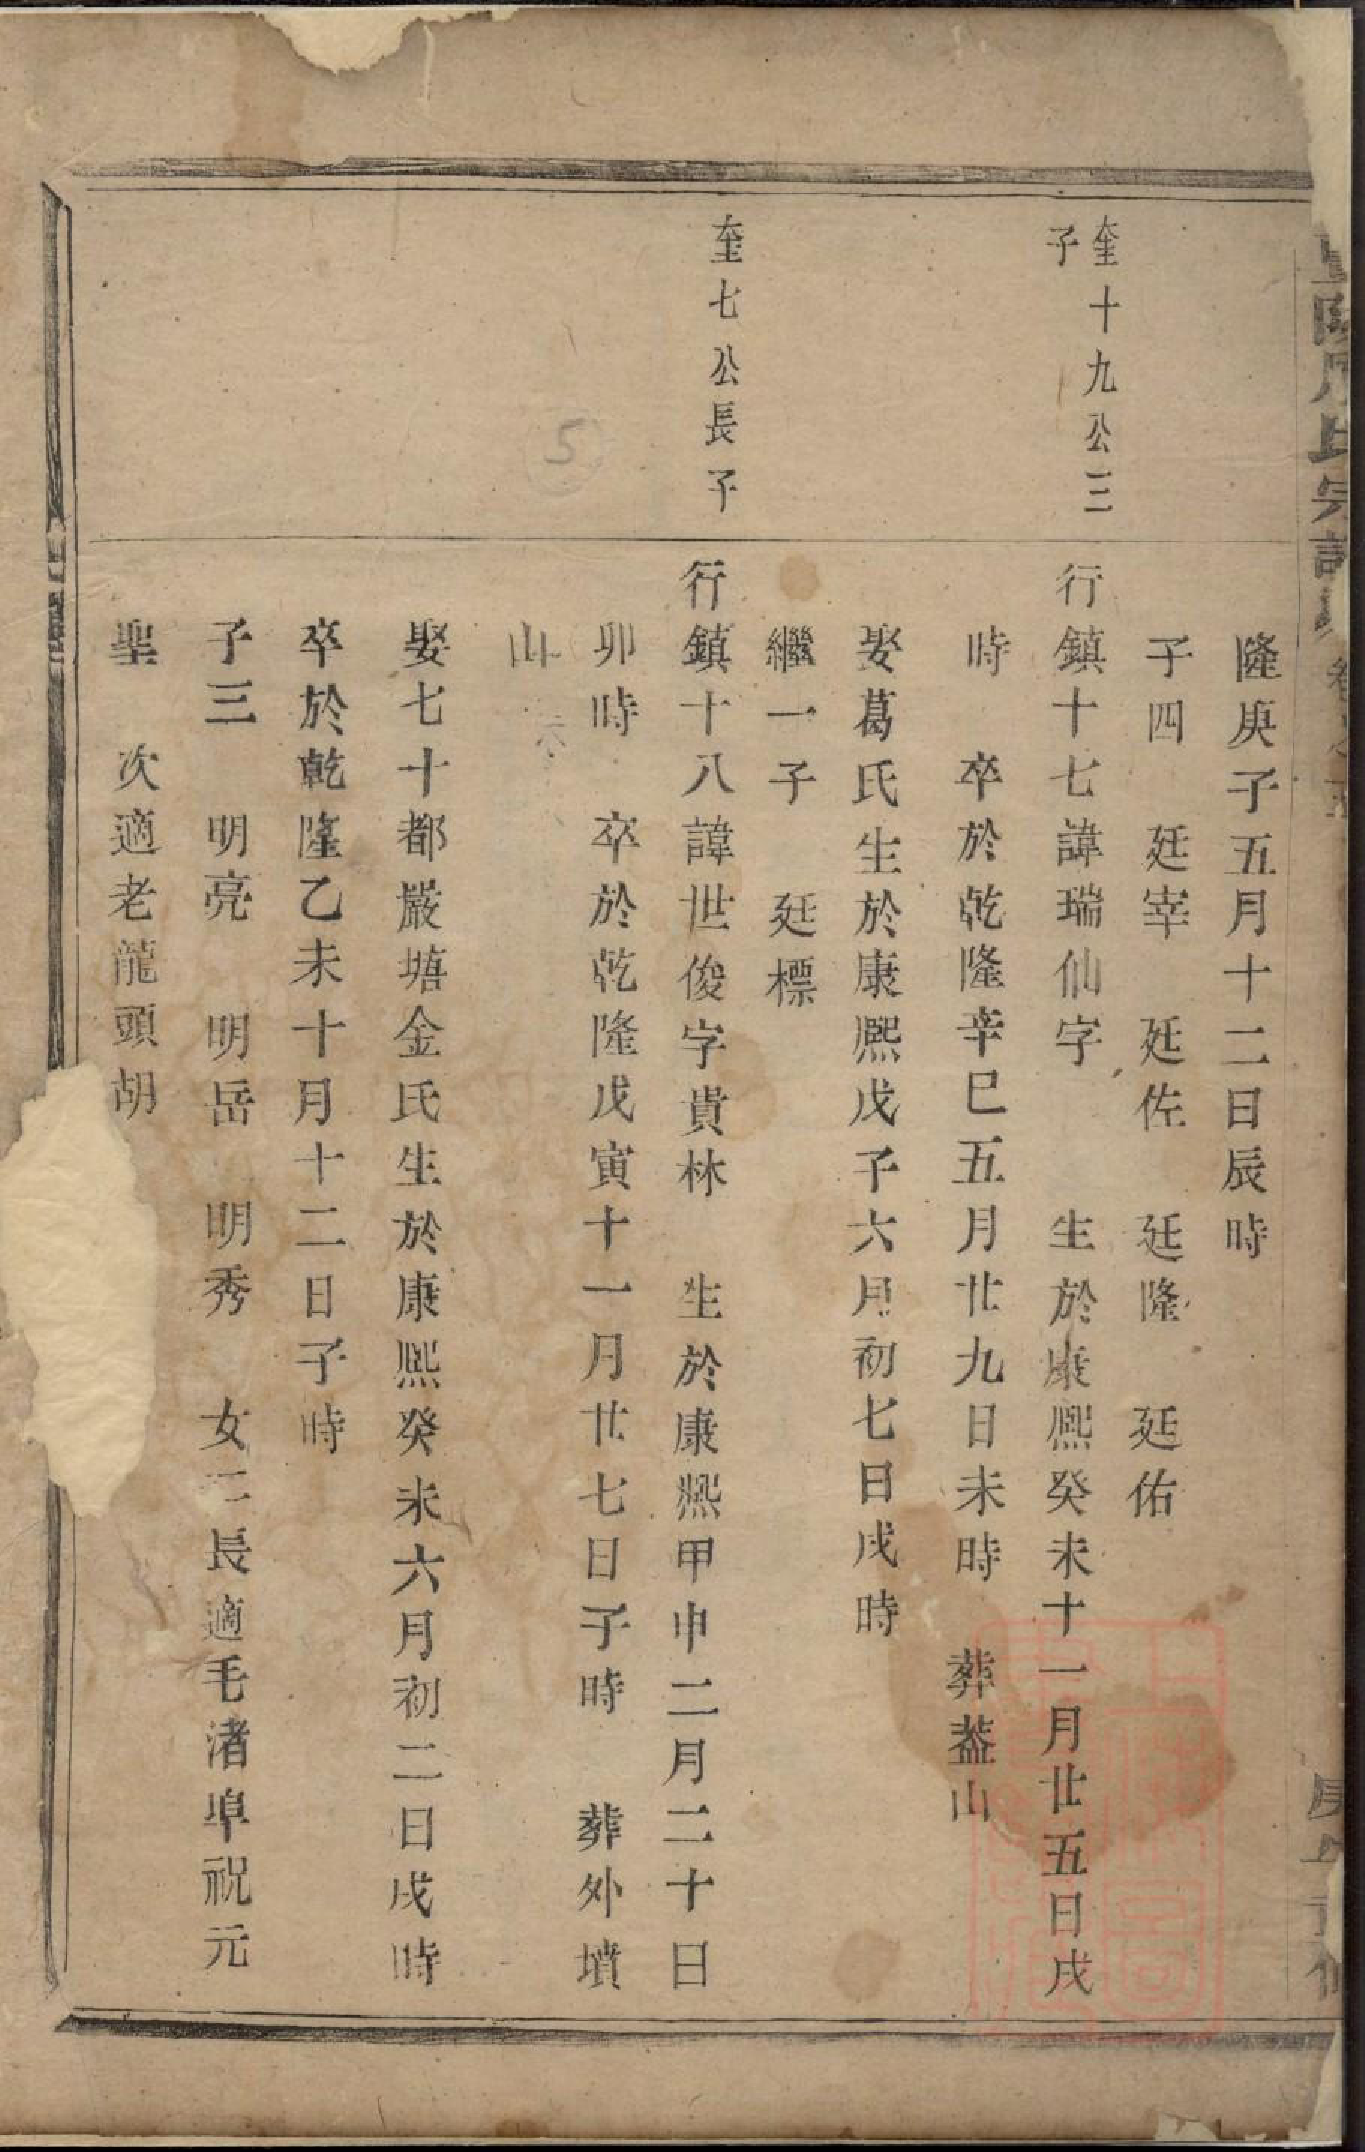 隆庚子五月十二日辰時
子四　廷宰　廷佐　廷隆　廷佑
奎十九公三
子
行鎮十七諱瑞仙字　　生於康熙癸未十一月廿五日戌
時　卒於乾隆辛巳五月廿九日未時　葬葢山
娶葛氏生於康熙戊子六月初七日戌時
繼一子　廷標
奎七公長子
行鎮十八諱世俊字貴林　生於康熙甲申二月二十日
卯時　卒於乾隆戊寅十一月廿七日子時　葬外墳
山
娶七十都嚴塘金氏生於康熙癸未六月初二日戌時
卒於乾隆乙未十月十二日子時
子三　明亮　明岳　明秀　女二長適毛渚埠祝元
聖　次適老龍頭胡
2